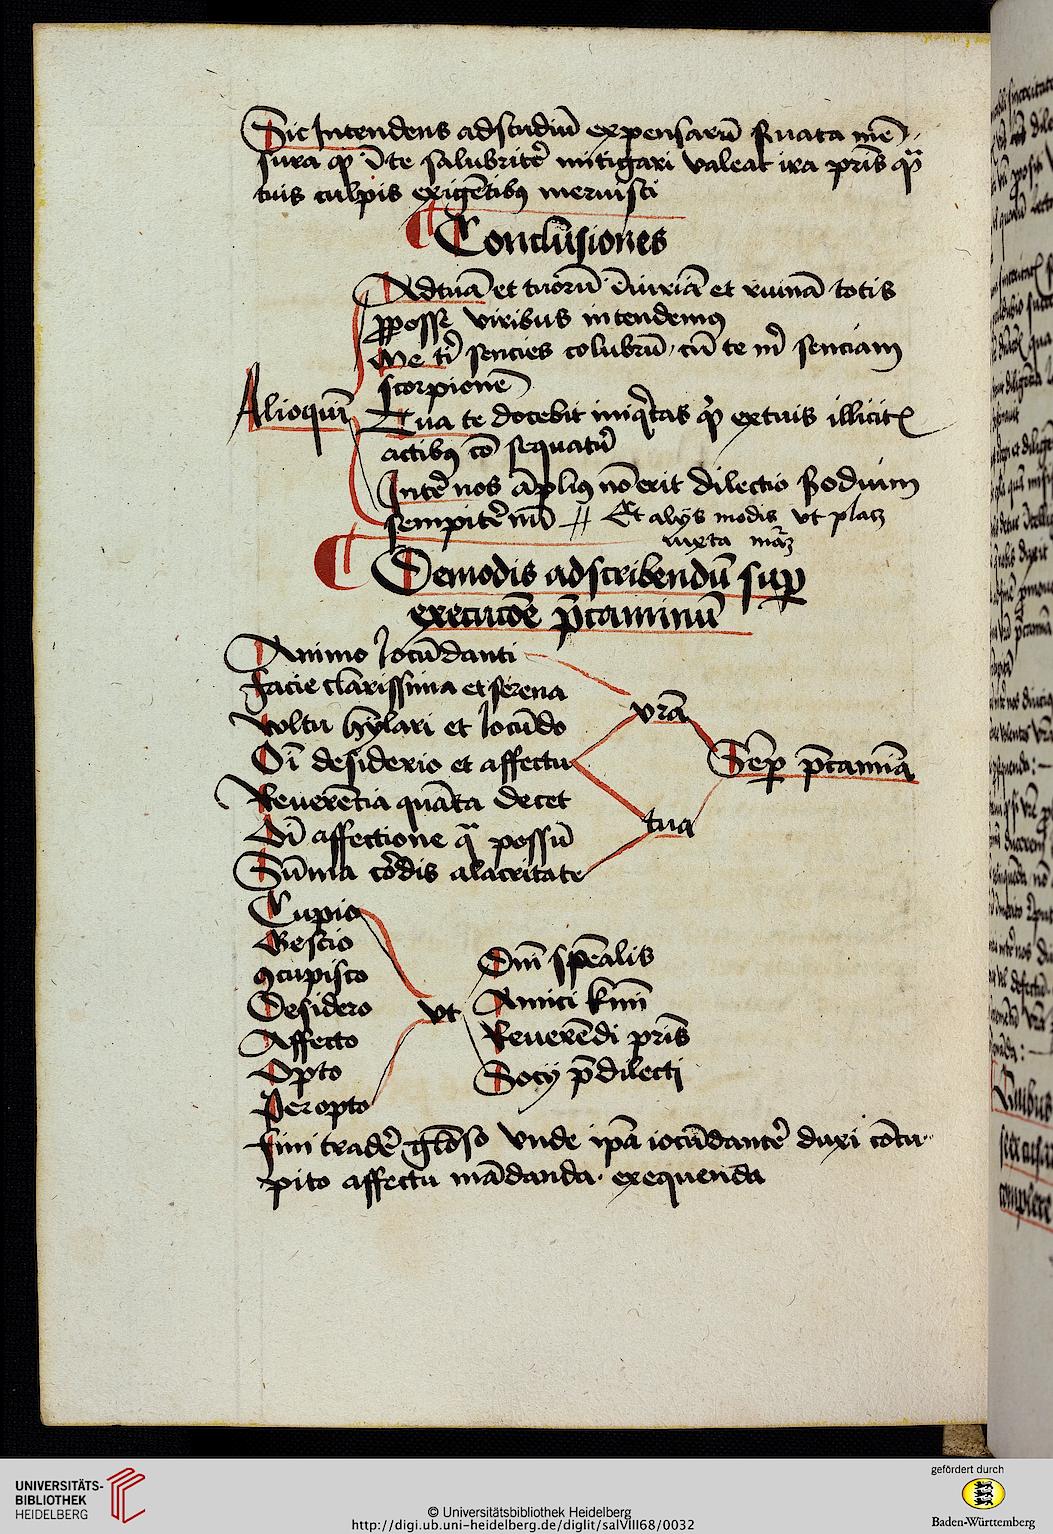 Sic Intendens ad studiū expensarū ſuata mē
sura ꝙ ī te salubrit͛ mitigari valeat ira pr̄is quā
tuis culpis exigētibꝰ meruisti
Conclūsiones
Ad tuā et tuorū Iniuriā et ruinā totis
ꝓposse viribus intendemꝰ
Me ti͛ sencies colubrū, cū te m͛ senciam
scorpionē
Alioquin
Tua te docebit iniq̇tas qd̄ ex tuis illicitꝭ
actibꝰ cō sequatur͛
Int͛ nos āplius nō erit dilectio S odium
sempit͛nū Et alijs modis vt placꝫ
iuxta māꝫ
De modis ad scribendū suꝑ
execucōe p̄caminū
Animo Iocūdanti
Facie clarissima et serena
Voltu hylari et Iocūdo
Oī desiderio et affectu
Reuerētia quāta decet
Oī affectione qᷓ possū
Sūma cordis alacritate
vrā
tua
Sēꝑ p̄camīa
Cupio
Gescio
ꝯcupisco
Desidero
Affecto
Opto
Per opto
vt
Dn̄i spēalis
Amici k̄mi
Reuerēdi pr̄is
Socij p̄dilecti
Fini trader͛ glōso Vnde ip̄a iocūdant͛ duxi cōcu
pito affectu mādanda exequenda
UNIVERSITÄTS-
BIBLIOTHEK
HEIDELBERG
© Universitätsbibliothek Heidelberg
http://digi.ub.uni-heidelberg.de/diglit/salVIII68/0032
gefördert durch
Baden-Württemberg